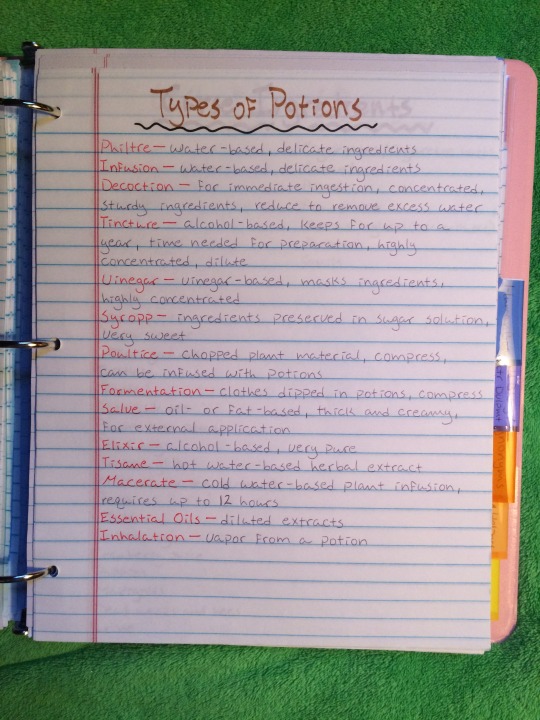 Types of Potions
Philtre — water-based, delicate ingredients
Infusion — water-based, delicate ingredients
Decoction — for immediate ingestion, concentrated,
sturdy ingredients, reduce to remove excess water
Tincture — alcohol-based, keeps for up to a
year, time needed for preparation, highly
concentrated, dilute
Vinegar — vinegar-based, masks ingredients,
highly concentrated
Syropp — ingredients preserved in sugar solution,
very sweet
Poultice — chopped plant material, compress,
can be infused with potions
Formentation — clothes dipped in potions, compress
Salve — oil- or fat-based, thick and creamy,
for external application
Elixir — alcohol-based, very pure
Tisane — hot water-based herbal extract
Macerate — cold water-based plant infusion,
requires up to 12 hours
Essential Oils — diluted extracts
Inhalation — vapor from a potion